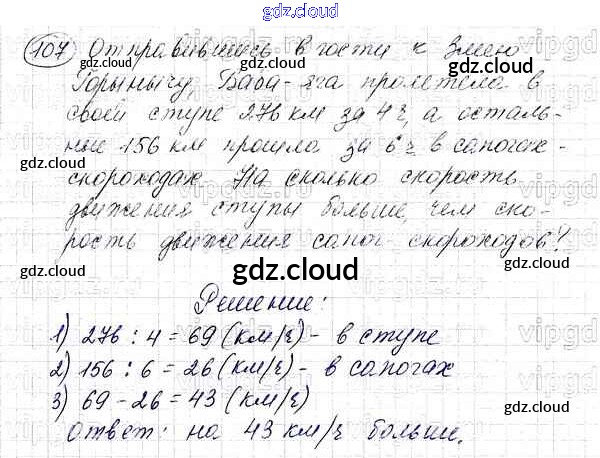 gdz.cloud
107 Отправившись в гости к Змею
Горынычу, Баба-яга пролетела в
своей ступе 276 км за 4 ч, а осталь-
ные 156 км прошла за 6 ч в сапогах-
скороходах. На сколько скорость
движения ступы больше, чем ско-
рость движения сапог-скороходов?
gdz.cloud
Решение:
1) 276 : 4 = 69 (км/ч) - в ступе
2) 156 : 6 = 26 (км/ч) - в сапогах
3) 69 - 26 = 43 (км/ч)
ответ: на 43 км/ч больше.
gdz.cloud
gdz.cloud
gdz.cloud
gdz.cloud
gdz.cloud
gdz.cloud
gdz.cloud
gdz.cloud
gdz.cloud
vipgdz
vipgdz
vipgdz
vipgdz